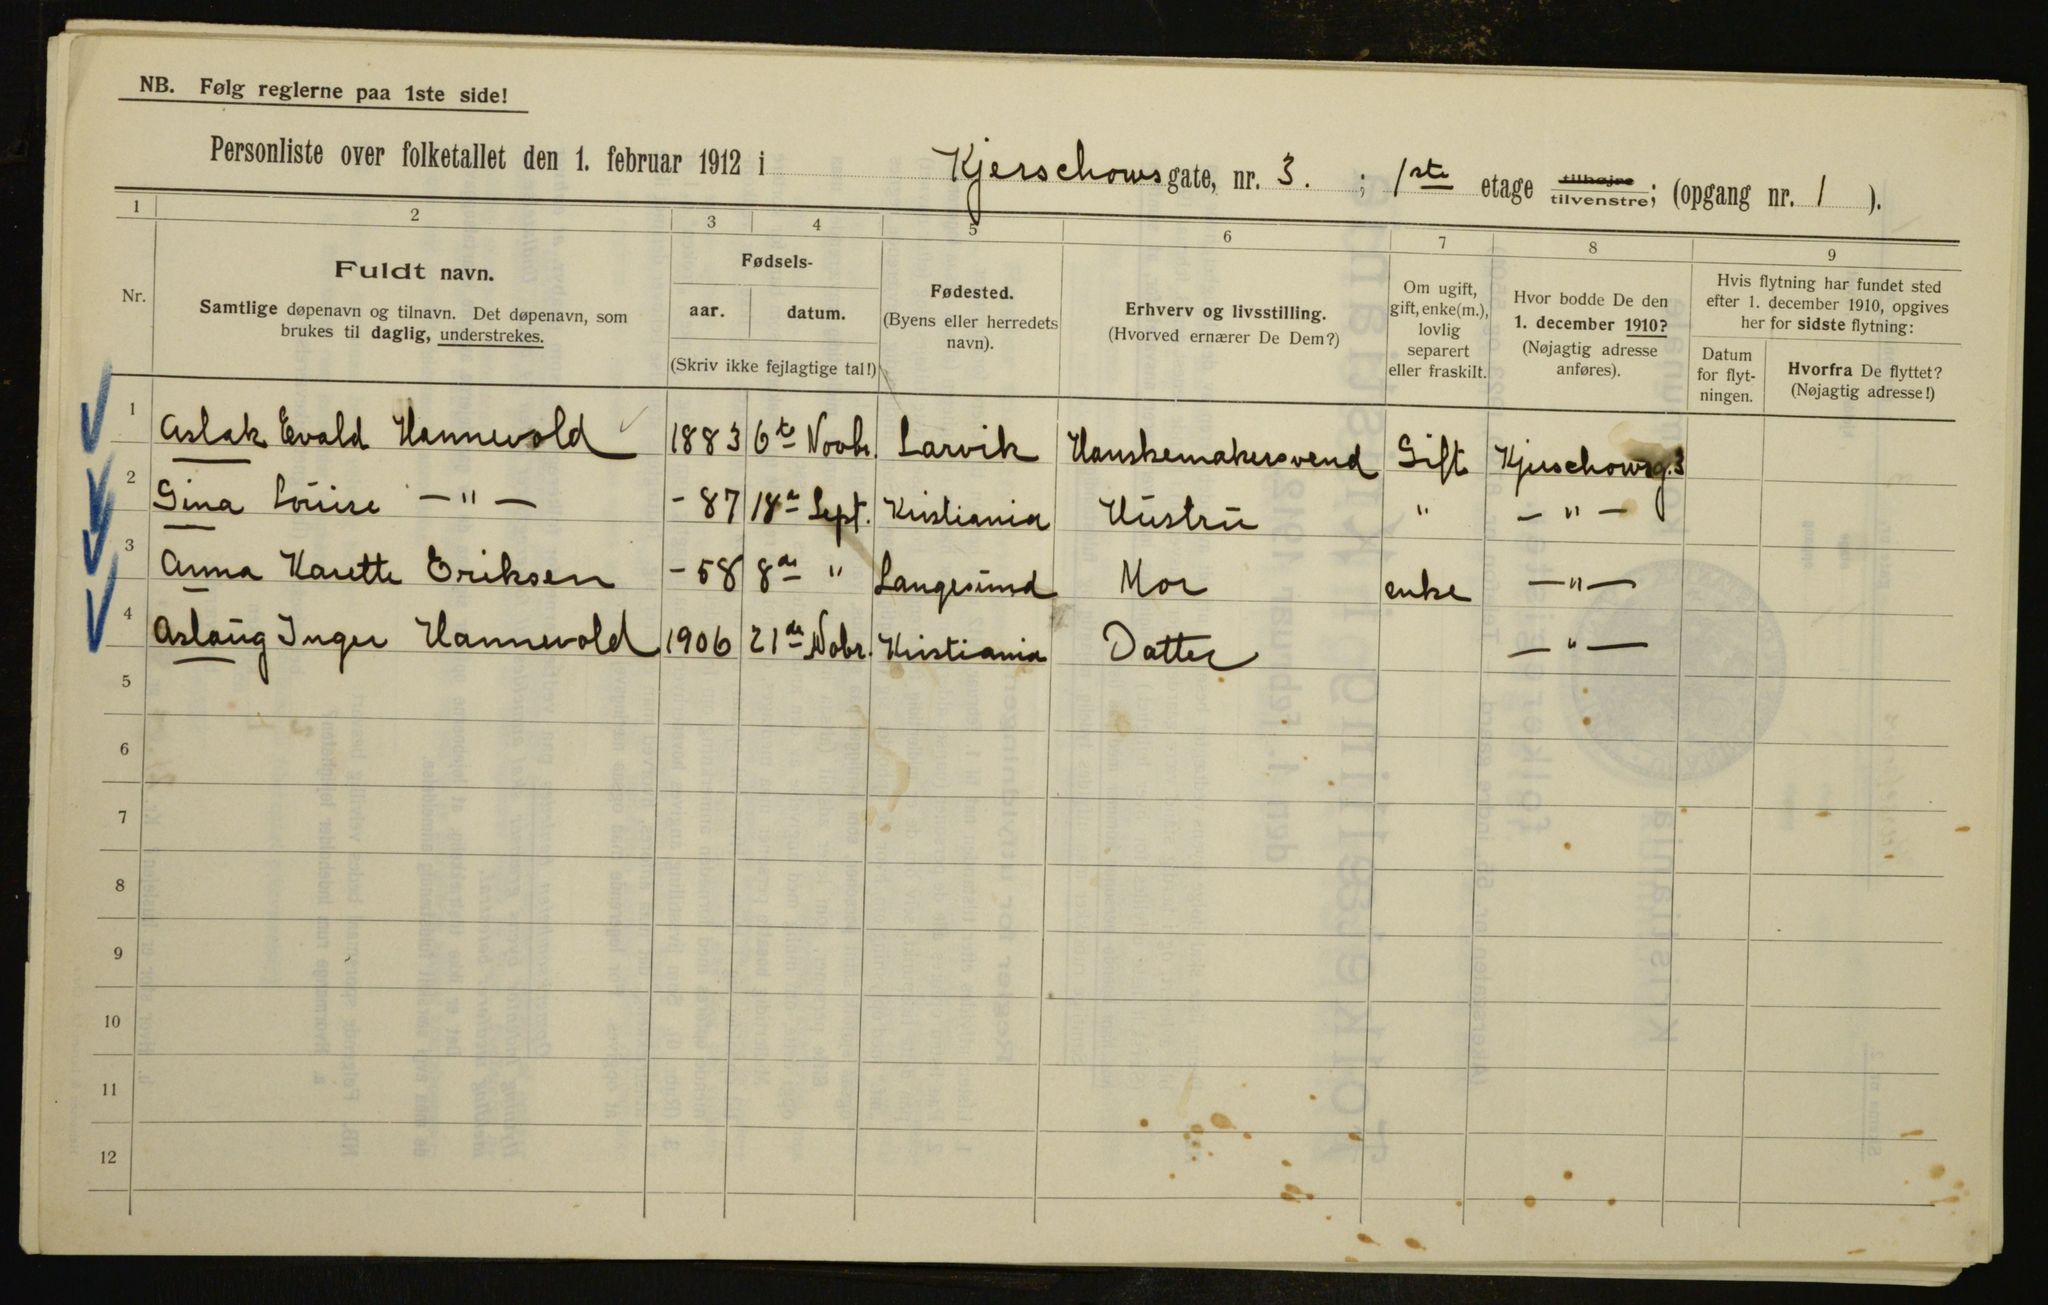 NB. Følg reglerne paa 1ste side!
Personliste over folketallet den 1. februar 1912 i Kjerschows gate, nr. 3. ; 1ste etage tilhøjre tilvenstre; (opgang nr. 1 ).
1 2 3 4 5 6 7 8 9
Nr.
Fuldt navn.
Samtlige døpenavn og tilnavn. Det døpenavn, som
brukes til daglig, understrekes.
Fødsels-
aar. datum.
(Skriv ikke fejlagtige tal!)
Fødested.
(Byens eller herredets
navn).
Erhverv og livsstilling.
(Hvorved ernærer De Dem?)
Om ugift,
gift, enke(m.),
lovlig
separert
eller fraskilt.
Hvor bodde De den
1. december 1910?
(Nøjagtig adresse
anføres).
Hvis flytning har fundet sted
efter 1. december 1910, opgives
her for sidste flytning:
Datum
for flyt-
ningen.
Hvorfra De flyttet?
(Nøjagtig adresse!)
1 Aslak Evald Hannevold 1883 6te Novbr. Larvik Hanskemakersvend Gift Kjerschowsg. 3
2 Gina Louise — " — - 87 18de Sept. Kristiania Hustru " — " —
3 Anna Karette Eriksen - 58 8de " Langesund Mor enke — " —
4 Aslaug Inger Hannevold 1906 21de Nobr. Kristiania Datter — " —
5
6
7
8
9
10
11
12